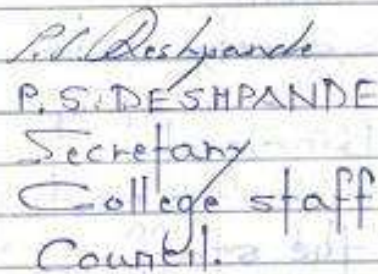 P.S. Deshpande
P.S. DESHPANDE
Secretary
College staff
Council.